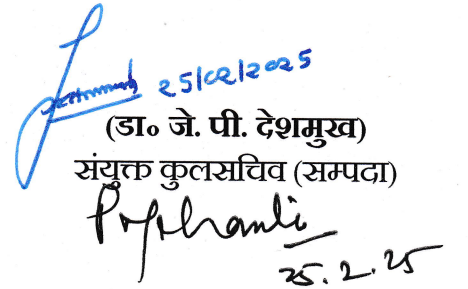 25/02/2025
(डा० जे. पी. देशमुख)
संयुक्त कुलसचिव (सम्पदा)
25.2.25